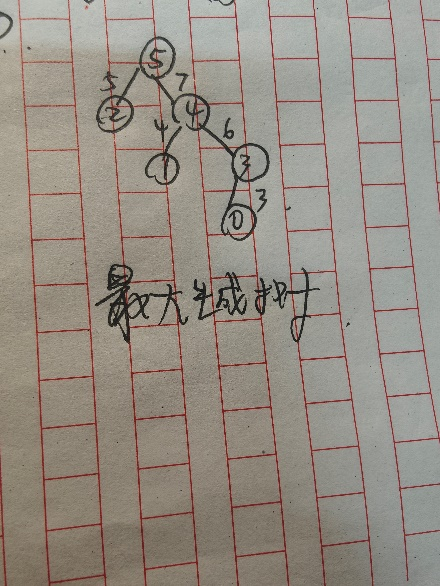 5
5 7
2 4
4 6
1 3
3
0
最大生成树